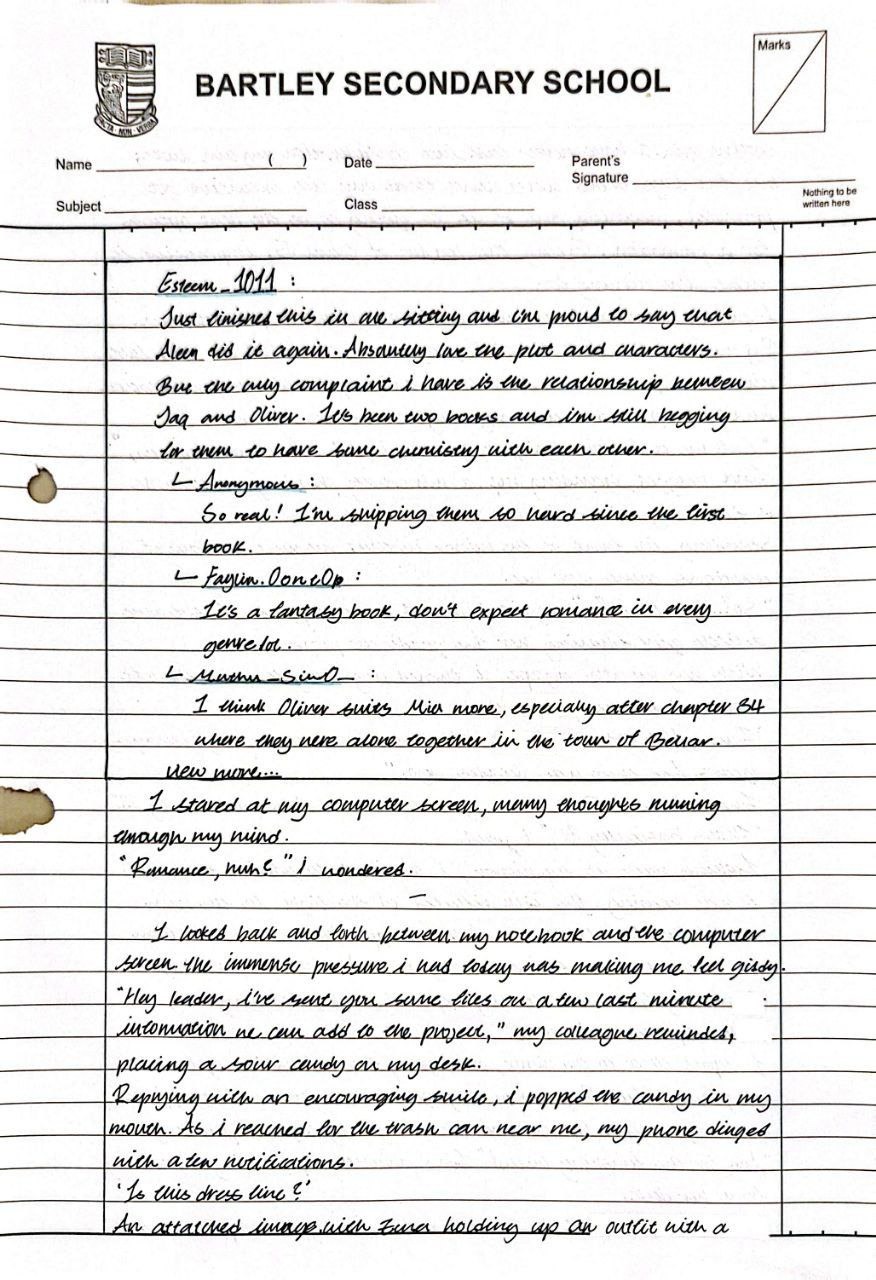 Marks
BARTLEY SECONDARY SCHOOL
ACTA · NON · VERBA
Name ( ) Date Parent's
Signature
Subject Class Nothing to be
written here
Esteem_1011 :
Just finished this in one sitting and i'm proud to say that
Aleen did it again. Absolutely love the plot and characters.
But the only complaint i have is the relationship between
Jaq and Oliver. It's been two books and i'm still begging
for them to have some chemistry with each other.
↳ Anonymous :
So real! I'm shipping them so hard since the first
book.
↳ :
It's a fantasy book, don't expect romance in every
genre lol.
↳ :
I think Oliver suits Mia more, especially after chapter 34
where they were alone together in the town of
view more...
I stared at my computer screen, many thoughts running
through my mind.
"Romance, huh?" i wondered.
—
I looked back and forth between my notebook and the computer
screen. the immense pressure i had today was making me feel giddy.
"Hey leader, i've sent you some files on a few last minute
information we can add to the project," my colleague reminded,
placing a sour candy on my desk.
Replying with an encouraging smile, i popped the candy in my
mouth. As i reached for the trash can near me, my phone dinged
with a few notifications.
'Is this dress fine?'
An attatched image with holding up an outfit with a